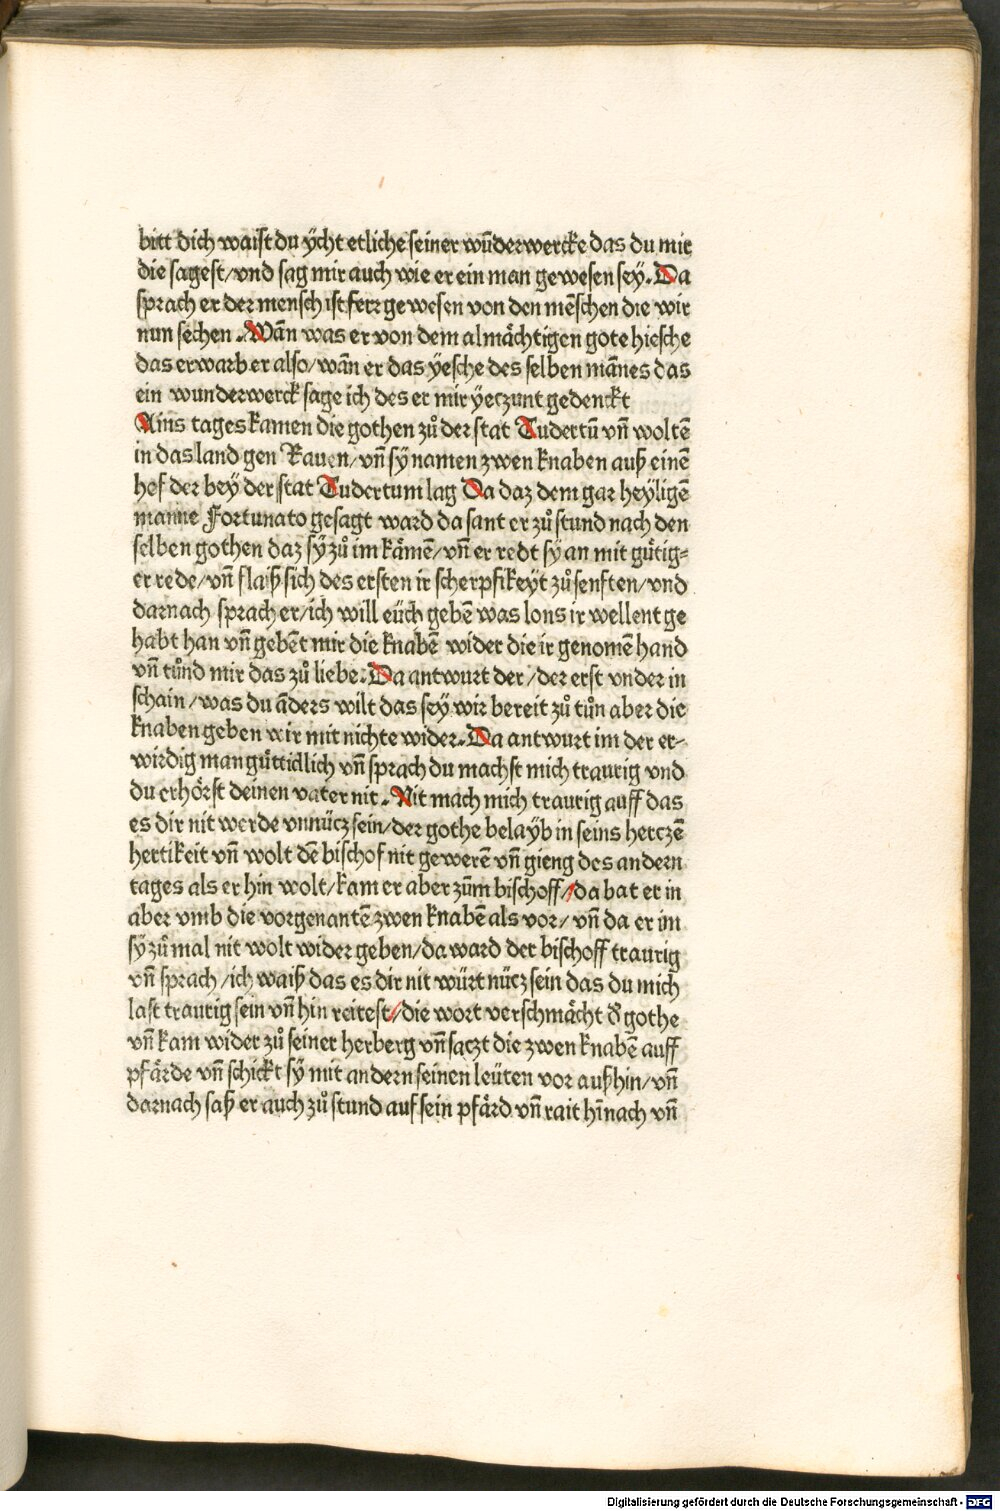 bitt dich waist du ÿcht etliche seiner wūderwercke das du mir
die sagest/vnd sag mir auch wie er ein man gewesen seÿ. Da
sprach er der mensch ist ferr gewesen von den mēschen die wir
nun sechen. Wān was er von dem almächtigen gote hiesche
das erwarb er also/wān er das ÿesche des selben mānes das
ein wunderwerck sage ich des er mir ÿeczunt gedenckt
Ains tages kamen die gothen zů der stat Tudertū vn̄ woltē
in das land gen Rauen/vn̄ sÿ namen zwen knaben auß einē
hof der beÿ der stat Tudertum lag Da daz dem gar heÿligē
manne Fortunato gesagt ward da sant er zů stund nach den
selben gothen daz sÿ zů im kämē/vn̄ er redt sÿ an mit gütig⸗
er rede/vn̄ flaiß sich des ersten ir scherpfikeyt zů senften/vnd
darnach sprach er/ich will eüch gebē was lons ir wellent ge
habt han vn̄ gebēt mir die knabē wider die ir genomē hand
vn̄ tůnd mir das zů liebe. Da antwurt der/der erst vnder in
schain/was du āders wilt das sey wir bereit zů tůn aber die
knaben geben wir mit nichte wider. Da antwurt im der er⸗
wirdig man güttidlich vn̄ sprach du machst mich traurig vnd
du erhörst deinen vater nit. Nit mach mich traurig auff das
es dir nit werde vnnücz sein/der gothe belaÿb in seins herczē
hertikeit vn̄ wolt dē bischof nit gewerē vn̄ gieng des andern
tages als er hin wolt/kam er aber zūm bischoff/da bat er in
aber vmb die vorgenantē zwen knabē als vor/vn̄ da er im
sÿ zů mal nit wolt wider geben/da ward der bischoff traurig
vn̄ sprach/ich waiß das es dir nit würt nücz sein das du mich
last traurig sein vn̄ hin reitest/die wort verschmächt d̕ gothe
vn̄ kam wider zů seiner herberg vn̄ saczt die zwen knabē auff
pfärde vn̄ schickt sÿ mit andern seinen leüten vor außhin/vn̄
darnach saß er auch zů stund auf sein pfärd vn̄ rait hīnach vn̄
Digitalisierung gefördert durch die Deutsche Forschungsgemeinschaft - DFG